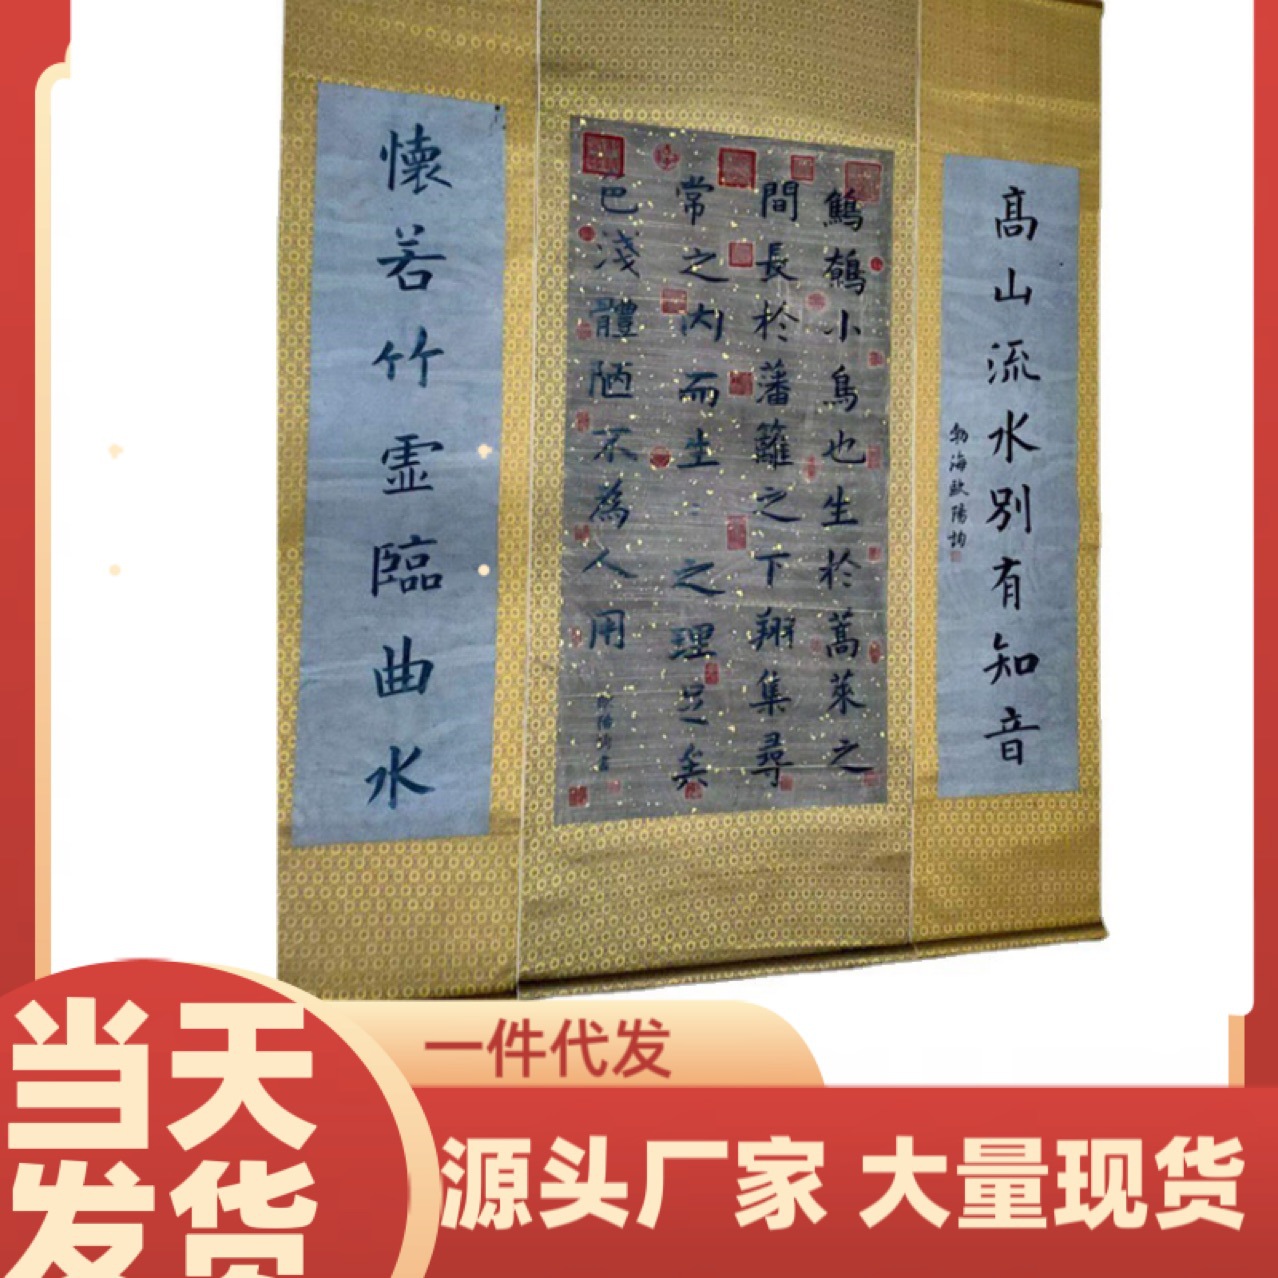 高山流水別有知音
勃海歐陽詢
鷦鷯小鳥也生於蒿萊之
間長於藩籬之下翔集尋
常之內而生
之理足矣
色淺體陋不為人用
歐陽詢書
懷若竹虛臨曲水
当天
发货
一件代发
源头厂家 大量现货